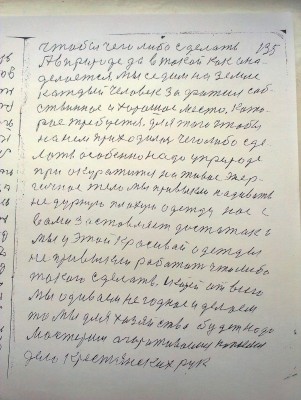 чтобы чего либо сделать 135
А в природе да в такой как она
делается мы сидим на земле
каждый человек заражён соб
ственное и хорошее место. Кото
рое требуется, для того чтобы
на нем приходилось чего либо сде
лать особенно надо у природе
при окружится на живое энер
гичное тело мы привыкли надевать
не дурную плохую одежду нас с
вами заставляет достатака
мы у этой красивой одежды
не привыкли работать что либо
такого сделать. от всего
мы одеваем негодное и делаем
то мы для хозяйства будет надо
материи
дело крестьянских рук